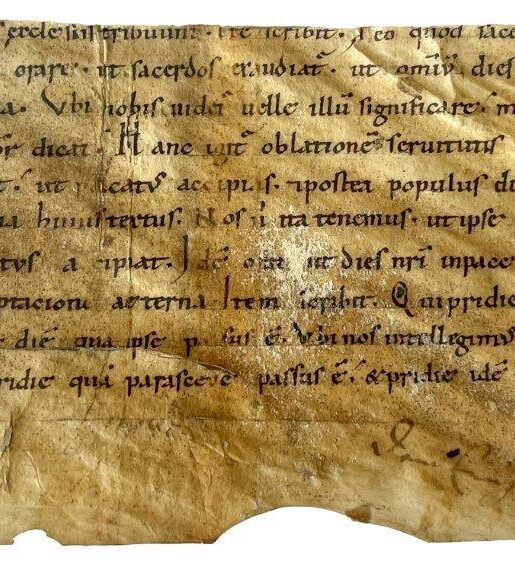 ęcclesiis tribuunt. Ite scribit. I eo quod sace
orare. ut sacerdos exaudiat̃. ut omiũ dies
a. Vbi nobis uidet̃ uelle illũ significare. m
dicat. Hanc igit̃ oblationẽ seruitutis
t. ut placatus accipias. ⁊postea populus d
Nos ũ ita tenemus. ut ipse
tus accipiat. Idẽ orat ut dies nr̃i inpace
ptacione aeterna Item scribit. Qui pridie
die quã ipse passus ẽ. Vbi nos intellegimus
ridie quã parasceue passus ẽ. &pridie idẽ